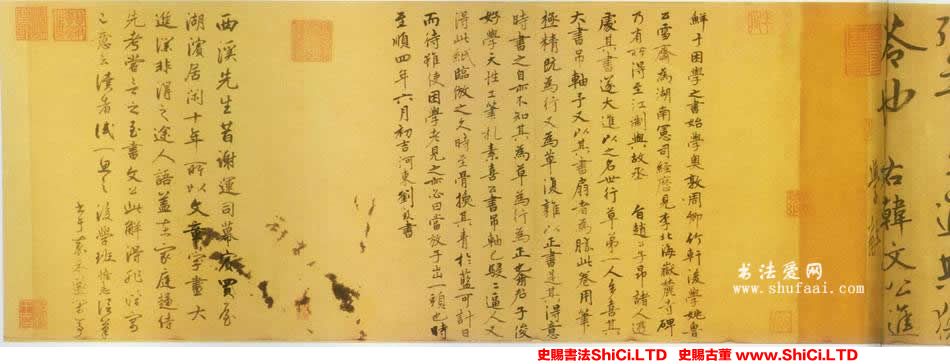 苓也 右韓文公進
學解
鮮于困學之書始學奧敦周卿竹軒後學姚魯
公雪齋為湖南憲司經歷見李北海嶽麓寺碑
乃有所得至江浙與故承 旨趙公子昂諸人遊
處其書遂大進以之名世行草第一人多喜其
大書吊軸子又以其書扇者為勝此卷用筆
極精既為行又為草復雜以正書是其得意
時書之自亦不知其為草為行為正也喬君子俊
好學天性工筆札素喜公書吊軸已疑公逼人又
得此紙臨倣之久時至骨換其青於藍可計日
而待雖使困學老見之亦必曰當放子出一頭也時
至順四年六月初吉河東劉致書
西溪先生昔謝運司幕寓買屋
湖濱居閑十年所以文章字畫大
進深非得之途人語蓋在家庭趨侍
先考嘗言之至書文公此解得非深寓
己意云讀者 後學班惟志謹筆
书法爱网
www.shufaai.com
史賜書法ShiCi.LTD 史賜古董www.ShiCi.LTD